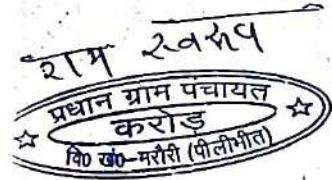 राम स्वरूप
प्रधान ग्राम पंचायत
करोड़
वि० खं०-मरौरी (पीलीभीत)